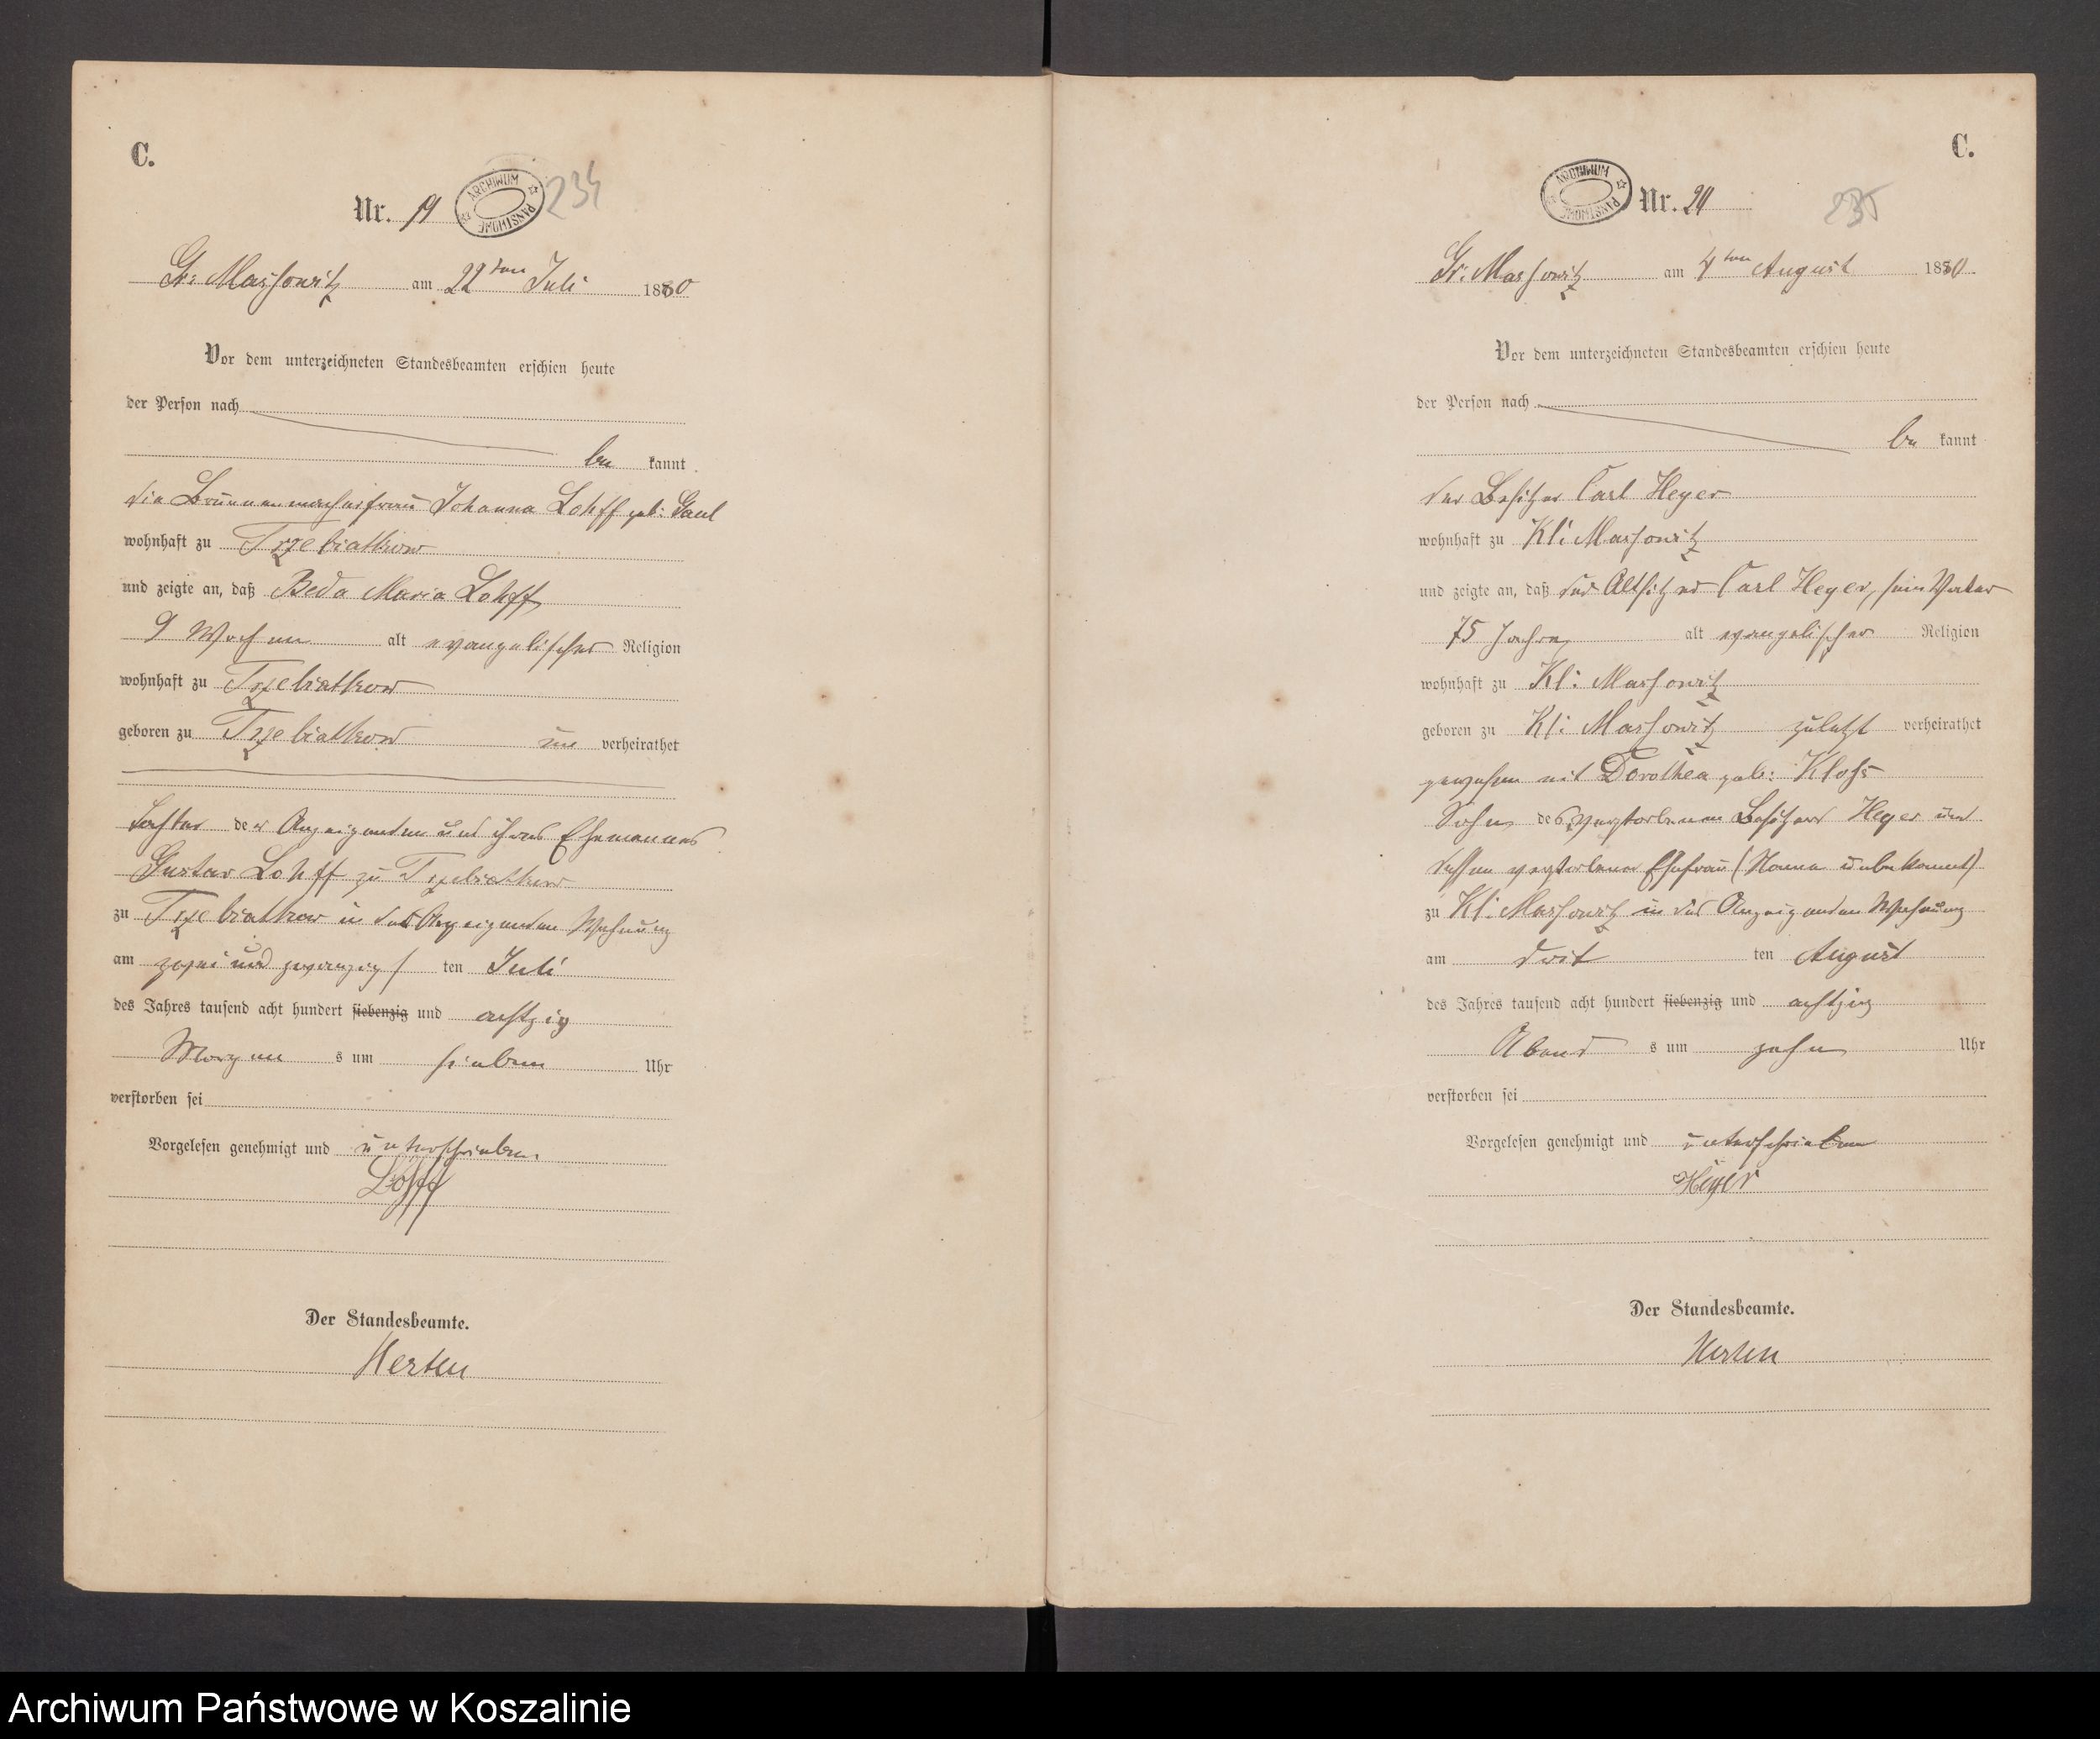 C.
Nr. 19
ARCHIWUM PAŃSTWOWE
234
Gr: Massowitz am 22ten Juli 1880
Vor dem unterzeichneten Standesbeamten erschien heute
der Person nach
be kannt
die Brunnenmacherfrau Johanna Lohff geb: Gaul
wohnhaft zu Trzebiatkow
und zeigte an, daß Beda Maria Lohff
9 Wochen alt evangelischer Religion
wohnhaft zu Trzebiatkow
geboren zu Trzebiatkow un verheirathet
Tochter der Anzeigenden und ihres Ehemannes
Gustav Lohff zu Trzebiatkow
zu Trzebiatkow in der Anzeigenden Wohnung
am zwei und zwanzigs ten Juli
des Jahres tausend acht hundert siebenzig und achtzig
Morgen s um sieben Uhr
verstorben sei
Vorgelesen genehmigt und unterschrieben.
Lohff
Der Standesbeamte.
Herten
C.
ARCHIWUM PAŃSTWOWE
Nr. 20
235
Gr: Massowitz am 4ten August 1880.
Vor dem unterzeichneten Standesbeamten erschien heute
der Person nach
be kannt
der Besitzer Carl Heyer
wohnhaft zu Kl: Massowitz
und zeigte an, daß der Altsitzer Carl Heyer, sein Vater
75 Jahre alt evangelischer Religion
wohnhaft zu Kl: Massowitz
geboren zu Kl: Massowitz zuletzt verheirathet
gewesen mit Dorothea geb: Kloss
Sohn des verstorbenen Besitzers Heyer und
dessen verstorbener Ehefrau (Name unbekannt)
zu Kl: Massowitz in des Anzeigenden Wohnung
am drit ten August
des Jahres tausend acht hundert siebenzig und achtzig
Abend s um zehn Uhr
verstorben sei
Vorgelesen genehmigt und unterschrieben
Heyer
Der Standesbeamte.
Herten
Archiwum Państwowe w Koszalinie